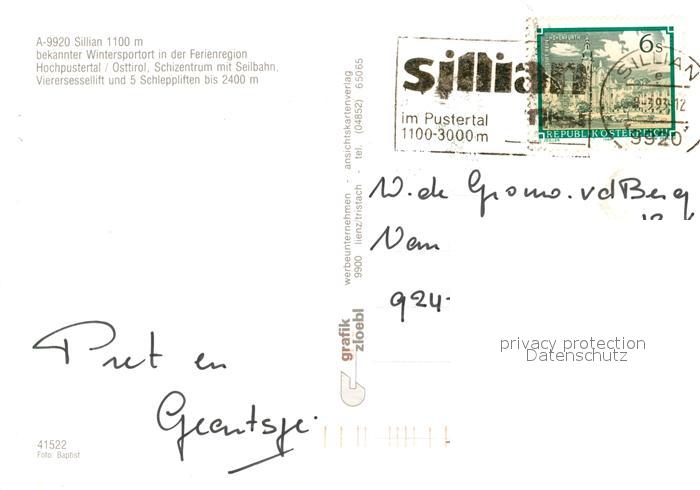 A-9920 Sillian 1100 m
bekannter Wintersportort in der Ferienregion
Hochpustertal / Osttirol, Schizentrum mit Seilbahn,
Vierersessellift und 5 Schleppliften bis 2400 m
sillian
im Pustertal
1100-3000 m
6 s
REPUBLIK ÖSTERREICH
SILLIAN
9920
werbeunternehmen - ansichtskartenverlag
9900 lienz/tristach - tel. (04852) 65065
grafik
zloebl
924-
privacy protection
Datenschutz
Pret en
41522
Foto: Baptist